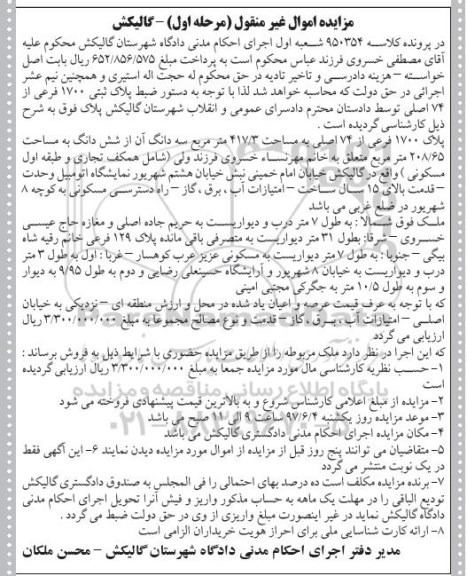 مزایده اموال غیر منقول (مرحله اول) - گالیکش
در پرونده کلاسه ۹۵۰۳۵۴ شعبه اول اجرای احکام مدنی دادگاه شهرستان گالیکش محکوم علیه
آقای مصطفی خسروی فرزند عباس محکوم است به پرداخت مبلغ ۶۵۲/۸۵۶/۵۷۵ ریال بابت اصل
خواسته - هزینه دادرسی و تاخیر تادیه در حق محکوم له حجت اله استیری و همچنین نیم عشر
اجرائی در حق دولت که محاسبه خواهد شد لذا با توجه به دستور ضبط پلاک ثبتی ۱۷۰۰ فرعی از
۷۴ اصلی توسط دادستان محترم دادسرای عمومی و انقلاب شهرستان گالیکش پلاک فوق به شرح
ذیل کارشناسی گردیده است .
پلاک ۱۷۰۰ فرعی از ۷۴ اصلی به مساحت ۴۱۷/۳ متر مربع سه دانگ آن از شش دانگ به مساحت
۲۰۸/۶۵ متر مربع متعلق به خانم مهرنساء خسروی فرزند ولی (شامل همکف تجاری و طبقه اول
مسکونی) واقع در گالیکش خیابان امام خمینی نبش خیابان هشتم شهریور نمایشگاه اتومبیل وحدت
- قدمت بالای ۱۵ سال ساخت - امتیازات آب ، برق ، گاز - راه دسترسی مسکونی به کوچه ۸
شهریور در ضلع غربی می باشد
ملک فوق شمالا : به طول ۷ متر درب و دیواریست به حریم جاده اصلی و مغازه حاج عیسی
خسروی - شرقا: بطول ۳۱ متر دیواریست به متصرفی باقی مانده پلاک ۱۲۹ فرعی خانم رقیه شاه
بیگی - جنوبا : به طول ۷ متر دیواریست به مسکونی عزیز عرب کوهسار - غربا : اول به طول ۳ متر
درب و دیواریست به خیابان ۸ شهریور و آرایشگاه حسینعلی رضایی و دوم به طول ۹/۹۵ به دیوار
و سوم به طول ۱۰/۵ متر به جگرکی مجتبی امینی
که با توجه به عرف قیمت عرصه و اعیان یاد شده در محل و ارزش منطقه ای - نزدیکی به خیابان
اصلی - امتیازات آب ، برق ، گاز - قدمت و نوع مصالح مجموعا به مبلغ ۳/۳۰۰/۰۰۰/۰۰۰ ریال
ارزیابی می گردد
که این اجرا در نظر دارد ملک مربوطه را از طریق مزایده حضوری با شرایط ذیل به فروش برساند :
۱- حسب نظریه کارشناسی مال مورد مزایده جمعا به مبلغ ۳/۳۰۰/۰۰۰/۰۰۰ ریال ارزیابی گردیده
است
۲- مزایده از مبلغ اعلامی کارشناس شروع و به بالاترین قیمت پیشنهادی فروخته می شود
۳- موعد مزایده روز یکشنبه ۹۷/۶/۴ ساعت ۹ الی ۱۰ صبح می باشد
۴- مکان مزایده اجرای احکام مدنی دادگستری گالیکش می باشد
۵- متقاضیان می توانند پنج روز قبل از مزایده از اموال مورد مزایده دیدن نمایند ۶- این آگهی فقط
در یک نوبت منتشر می گردد
۷- برنده مزایده مکلف است ده درصد بهای احتمالی را فی المجلس به صندوق دادگستری گالیکش
تودیع الباقی را در مهلت یک ماهه به حساب مذکور واریز و فیش آنرا تحویل اجرای احکام مدنی
دادگاه گالیکش نماید در غیر اینصورت مبلغ واریزی از وی در حق دولت ضبط می گردد .
۸- ارائه کارت شناسایی ملی برای احراز هویت خریداران الزامی است
مدیر دفتر اجرای احکام مدنی دادگاه شهرستان گالیکش - محسن ملکان